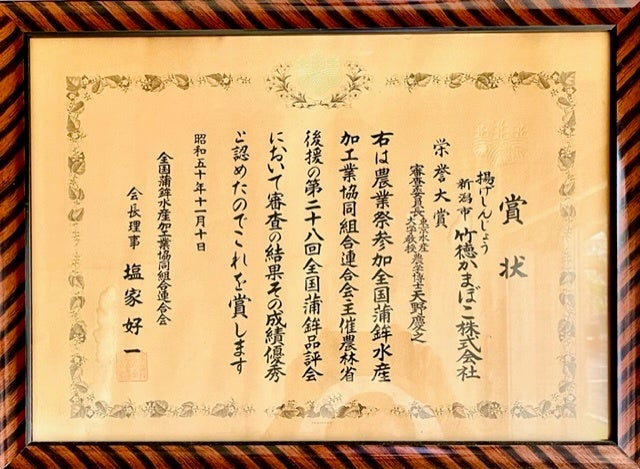 賞状
揚げしんじょう
新潟市 竹徳かまぼこ株式会社
栄誉大賞
審査委員長 東京水産大学教授 農学博士 天野慶之
右は農業祭参加全国蒲鉾水産
加工業協同組合連合会主催農林省
後援の第二十八回全国蒲鉾品評会
において審査の結果その成績優秀
と認めたのでこれを賞します
昭和五十年十一月十日
全国蒲鉾水産加工業協同組合連合会
会長理事 塩家好一